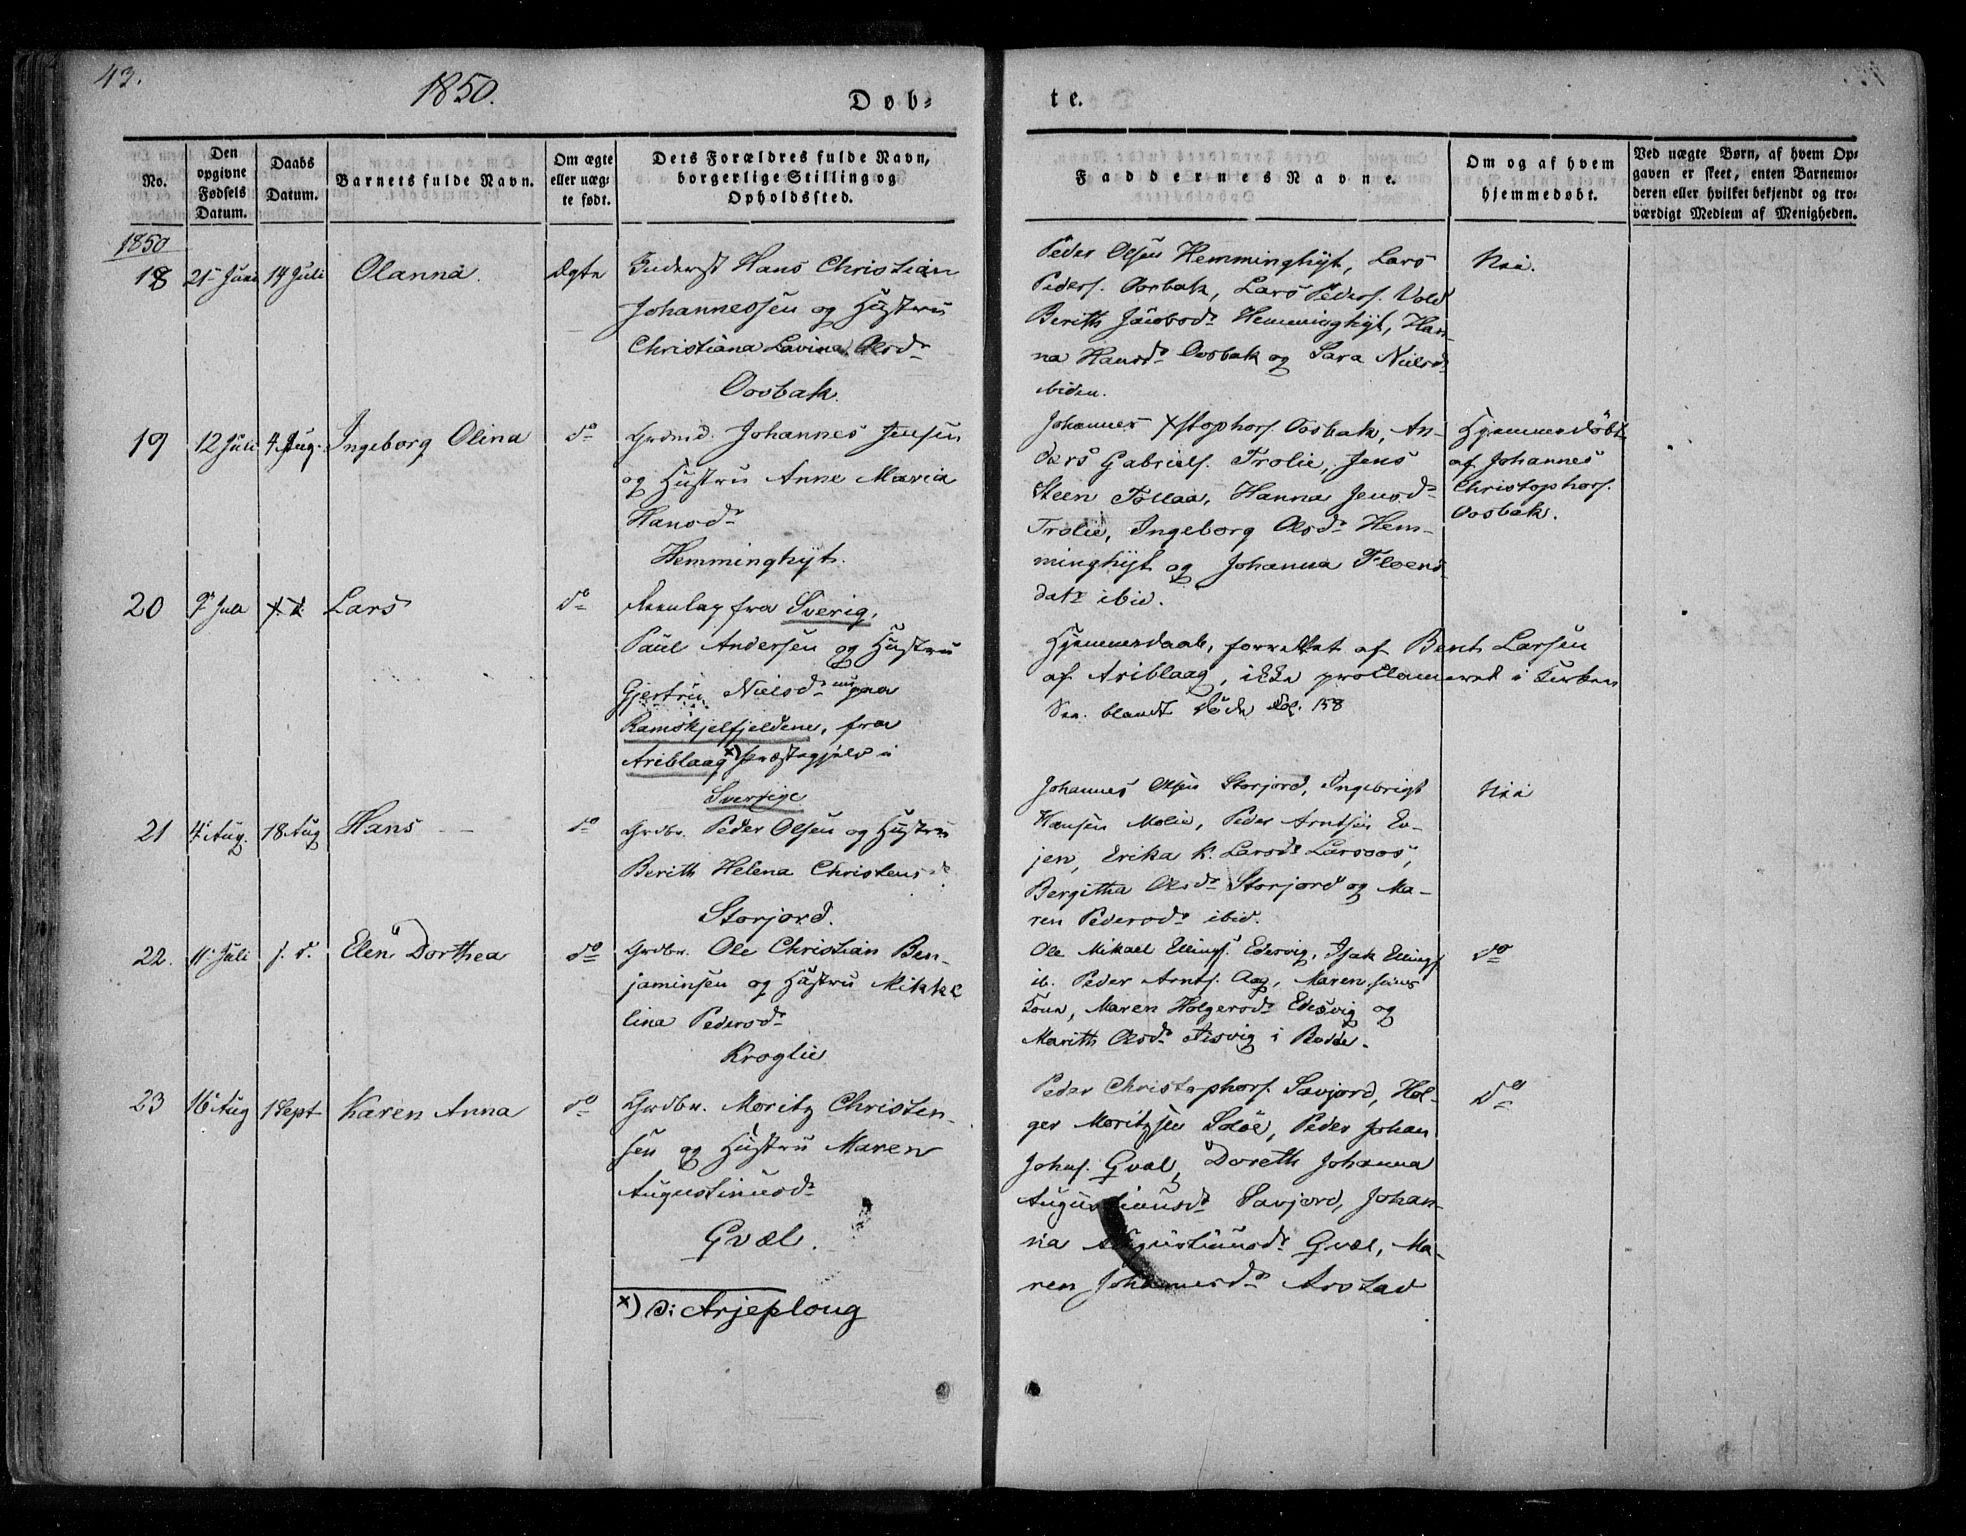 43.
1850.
Døb-
te.
No.
Den opgivne Fødsels Datum.
Daabs Datum.
Barnets fulde Navn.
Om ægte eller uægte født.
Dets Forældres fulde Navn, borgerlige Stilling og Opholdssted.
Faddernes Navne.
Om og af hvem hjemmedøbt.
Ved uægte Børn, af hvem Opgaven er skeet, enten Barnemoderen eller hvilket bekjendt og troværdigt Medlem af Menigheden.
1850
18
21 Juni
14 Juli
Olanna.
Ægte
Inderst Hans Christian
Johannessen og Hustru
Christiana Lavina Olsd.
Oosbak.
Peder Olsen Hemminghyt, Lars
Peders. Oosbak, Lars Peders. Vold
Berith Jacobsd. Hemminghyt, Han-
na Hansd. Oosbak og Sara Nielsd.
ibiden.
Nei.
19
12 Juli
4 Aug.
Ingeborg Olina
do
Grdmd. Johannes Jensen
og Hustru Anne Maria
Hansd.
Hemminghyt.
Johannes Xstophors. Oosbak, An-
ders Gabriels. Trolie, Jens
Steen Tollaa, Hanna Jensd.
Trolie, Ingeborg Olsd. Hem-
minghyt og Johanna
dat. ibid.
Hjemmedøbt
af Johannes
Christophors.
Oosbak.
20
Lars
do
fra Sverig,
Paul Andersen og Hustru
Gjertru Nielsd. nu paa
Ramskjelfjeldene, fra
Ariblaag x) Præstegjeld i
Sverige
Hjemmedaab, forrettet af Bent Larsen
af Ariblaag, ikke proklameret i Kirken
See blandt døde Fol. 158
21
4 Aug.
18 Aug
Hans
do
Grdbr. Peder Olsen og Hustru
Berith Helena Christensd.
Storjord.
Johannes Olsen Storjord, Ingebrigt
Hansen Molie, Peder Arntsen Ev-
jen, Erika K. Larsd. Larsoos,
Bergitha Olsd. Storjord og Ma-
ren Pedersd. ibid.
Nei
22.
11 Juli
s. d.
Elen Dorthea
do
Grdbr. Ole Christian Ben-
jaminsen og Hustru Mikke
lina Pedersd.
Kroglie
Ole Mikael Ellings. Edesvig, Isak Ellings.
ib. Peder Arnts. Aag, Maren hans
Kone, Maren Holgersd. Edesvig og
Marith Olsd. i Bodø.
do
23
16 Aug
1 Sept
Karen Anna
do
Grdbr. Moritz Christen-
sen og Hustru Maren
Augustinusd.
Gvæl.
Peder Christophors. Savjord, Hol-
ger Moritzsen Soløe, Peder Johan
Johns. Gvæl, Doreth Johanna
Augustinusd. Savjord, Johan-
na Augustinusd. Gvæl, Ma-
ren Johannesd. Arstad
do
x) ɔ: Arjeploug